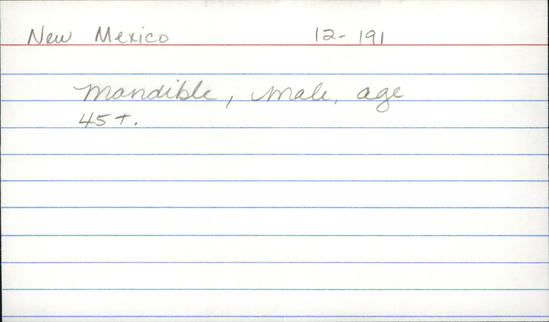 New Mexico 12-191
Mandible, male, age
45+.